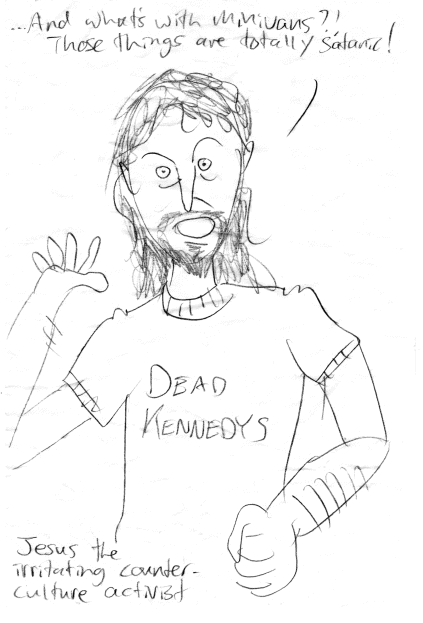 ...And what's with minivans?!
Those things are totally satanic!
DEAD
KENNEDYS
Jesus the
irritating counter-
culture activist